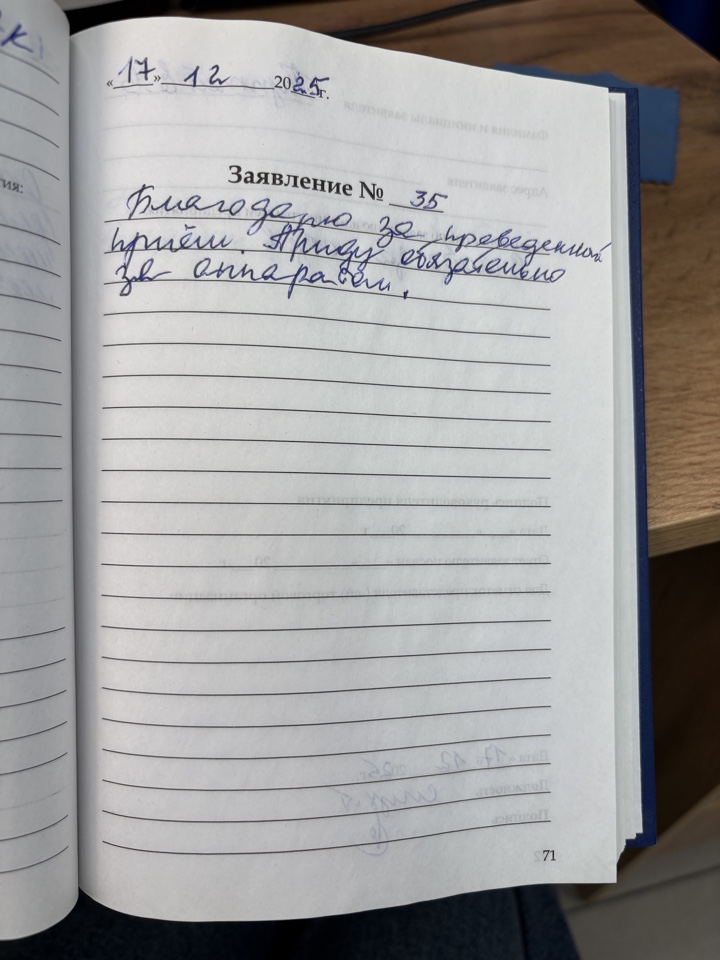 «17» 12 2025г.
Заявление № 35
Благодарю за проведенный
приём. Приду обязательно
за аппаратом.
тия:
71